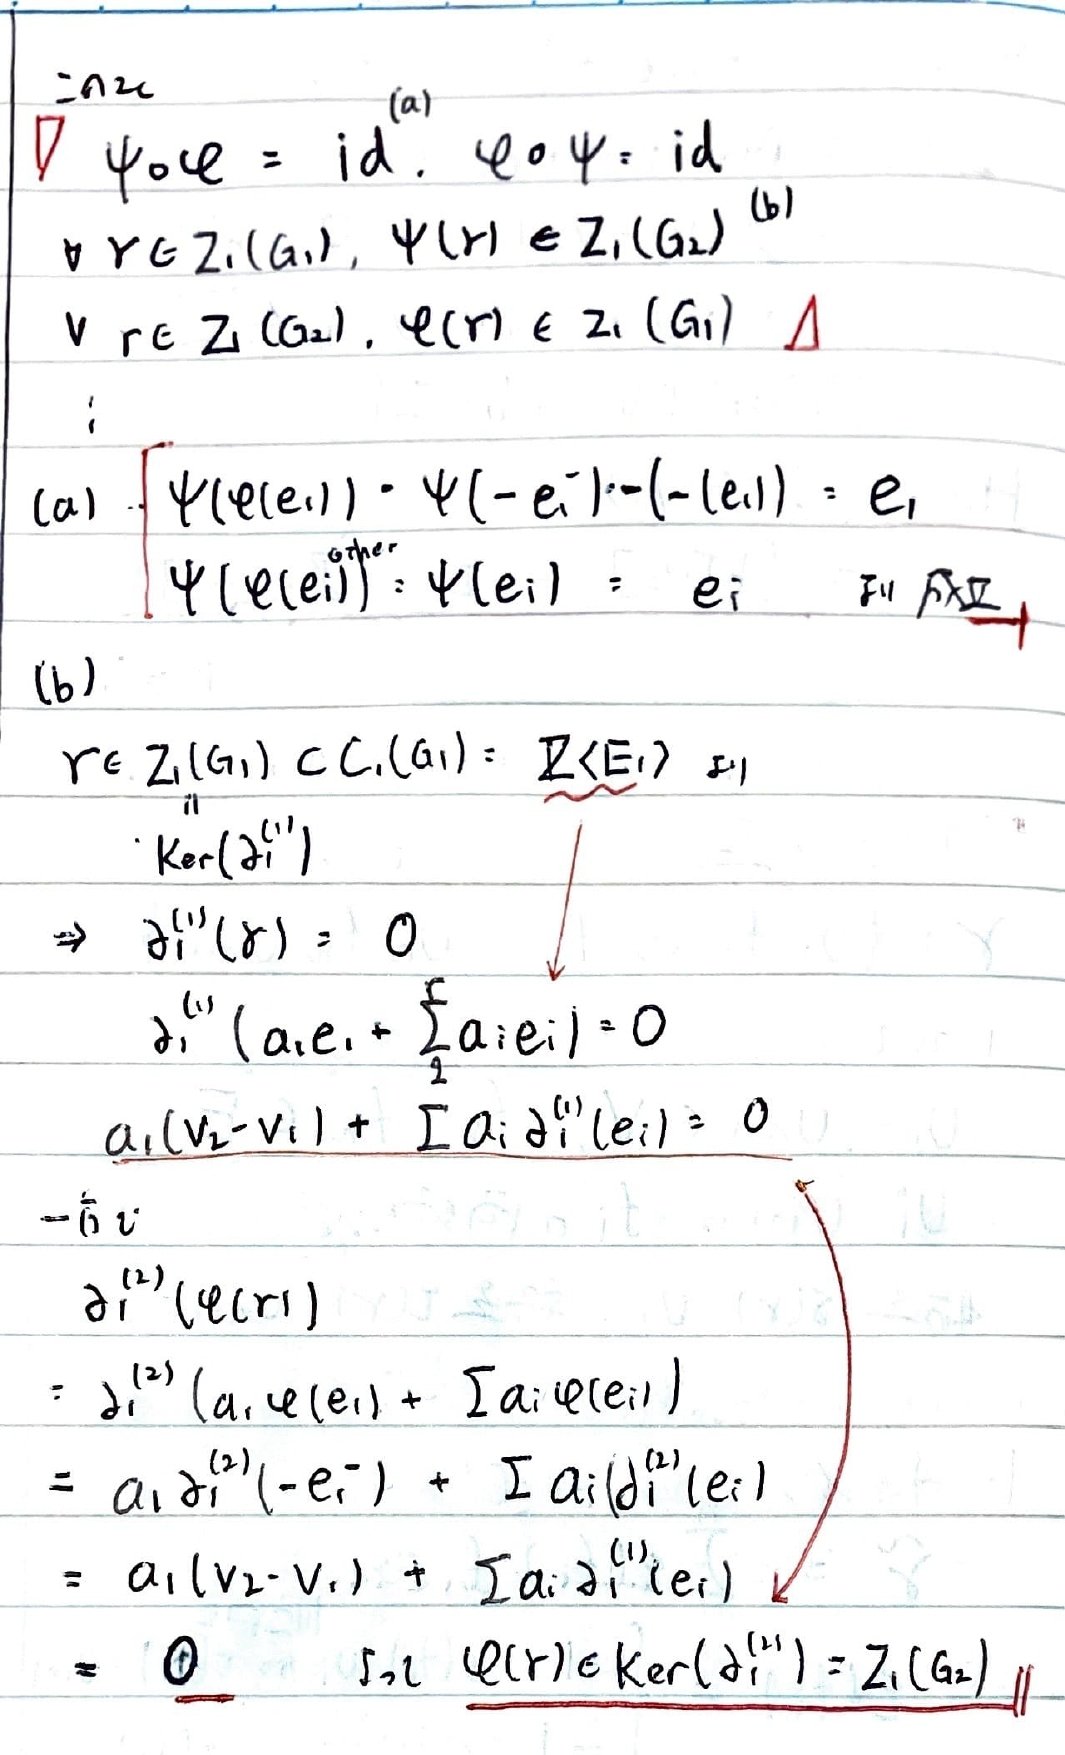 ψ∘φ = id (a). φ∘ψ = id
∀ γ ∈ Z₁(G₁), ψ(γ) ∈ Z₁(G₂) (b)
∀ γ ∈ Z₁(G₂). φ(γ) ∈ Z₁(G₁)
⋮
(a) ψ(φ(e₁)) = ψ(-e₁⁻) = -(-(e₁)) = e₁
ψ(φ(ei)) other = ψ(ei) = ei より 成立
(b)
γ ∈ Z₁(G₁) ⊂ C₁(G₁) = ℤ<E₁> より
Ker(∂₁⁽¹⁾)
⇒ ∂₁⁽¹⁾(γ) = 0
∂₁⁽¹⁾(a₁e₁ + Σ₂ʳ aᵢeᵢ) = 0
a₁(v₂-v₁) + Σ aᵢ ∂₁⁽¹⁾(eᵢ) = 0
一方で
∂₁⁽²⁾(φ(γ))
= ∂₁⁽²⁾(a₁φ(e₁) + Σaᵢφ(eᵢ))
= a₁∂₁⁽²⁾(-e₁⁻) + Σ aᵢ(∂₁⁽²⁾(eᵢ)
= a₁(v₂-v₁) + Σaᵢ∂₁⁽¹⁾(eᵢ)
= 0 よって φ(γ) ∈ Ker(∂₁⁽²⁾) = Z₁(G₂)